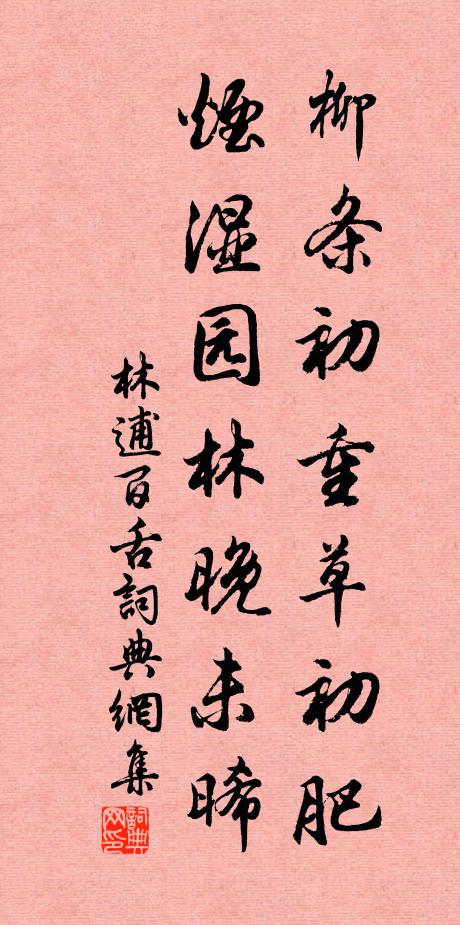 柳条初重草初肥
煙湿园林晚未晞
林逋百舌詞典網集
詞典网印